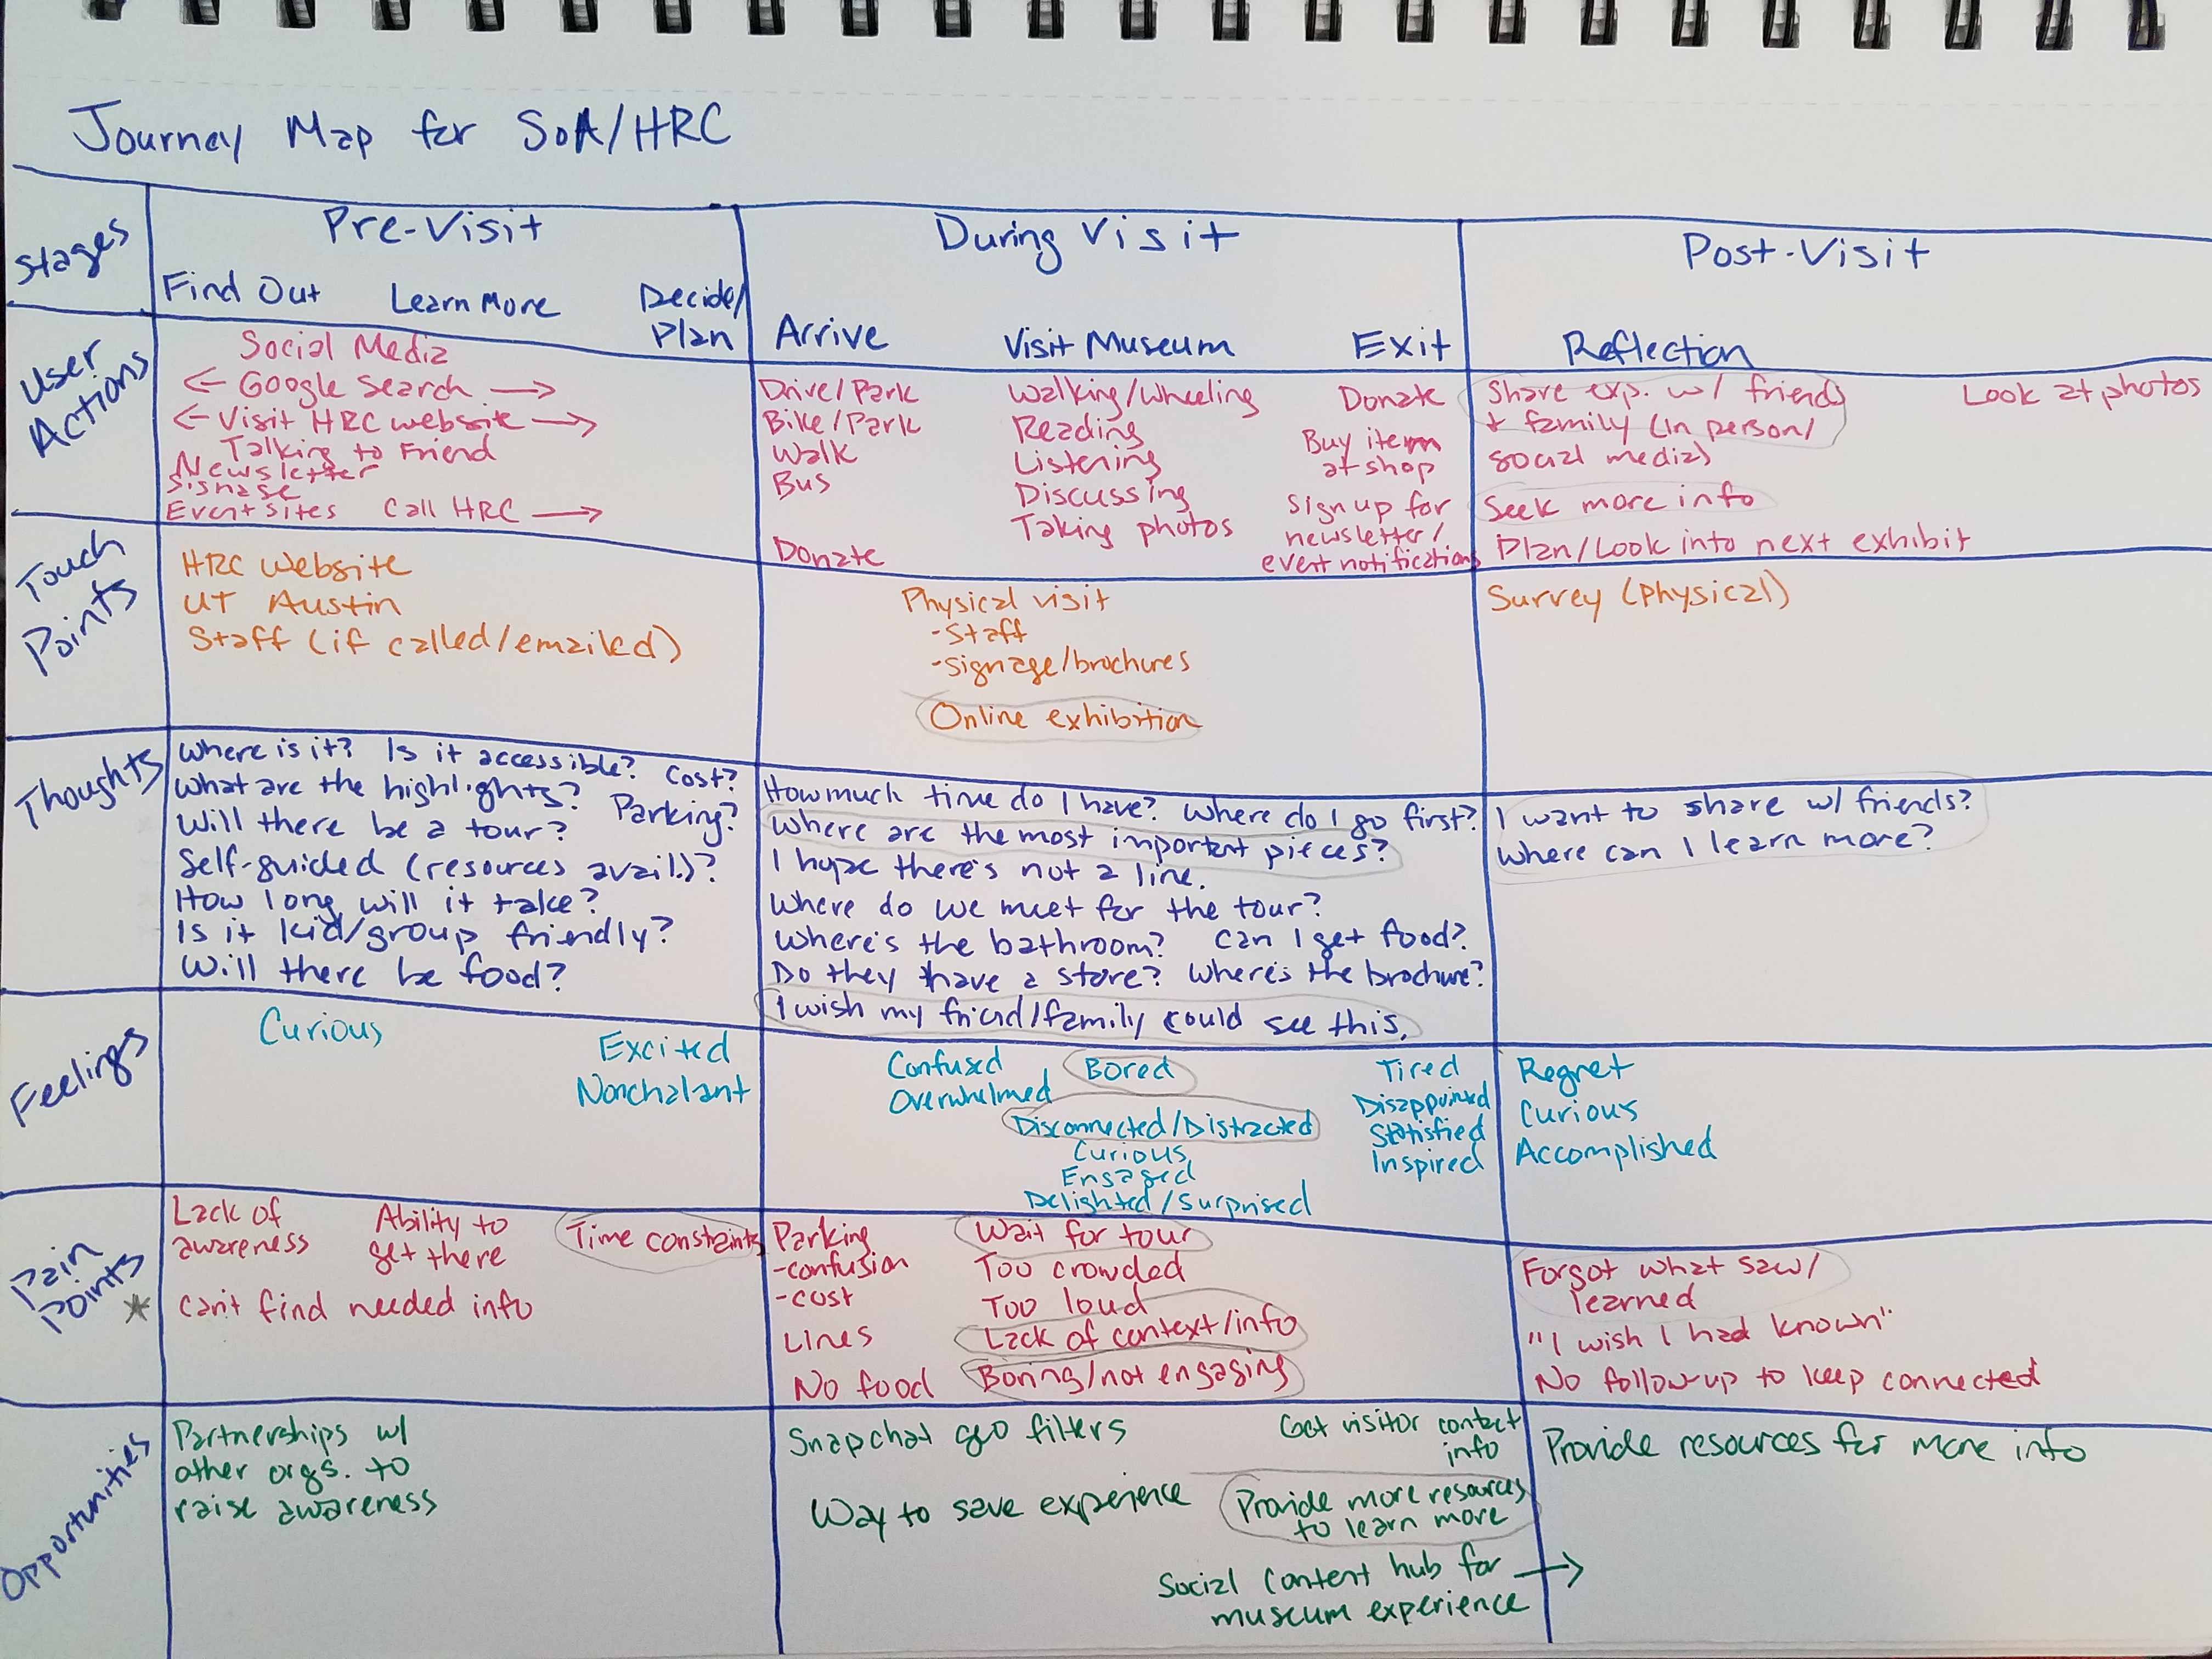 Journal Map for SoA/HRC
Stages
Pre-Visit
Find Out
Learn More
Decide/
Plan
During Visit
Arrive
Visit Museum
Exit
Post-Visit
Reflection
User
Actions
Social Media
<- Google Search ->
<- Visit HRC website ->
Talking to Friend
Newsletter
Signage
Event sites call HRC ->
Drive/Park
Bike/Park
Walk
Bus
Donate
Walking/Wheeling
Reading
Listening
Discussing
Taking photos
Donate
Buy item
at shop
Sign up for
newsletter/
event notifications
Share exp. w/ friends
+ family (in person/
social media)
Seek more info
Plan/Look into next exhibit
Look at photos
Touch
Points
HRC website
UT Austin
Staff (if called/emailed)
Physical visit
-Staff
-Signage/brochures
Online exhibition
Survey (physical)
Thoughts
Where is it? Is it accessible? Cost?
What are the highlights? Parking?
Will there be a tour?
Self-guided (resources avail.)?
How long will it take?
Is it kid/group friendly?
Will there be food?
How much time do I have? Where do I go first?
Where are the most important pieces?
I hope there's not a line.
Where do we meet for the tour?
Where's the bathroom? Can I get food?
Do they have a store? Where's the brochure?
I wish my friend/family could see this.
I want to share w/ friends?
Where can I learn more?
Feelings
Curious
Excited
Nonchalant
Confused
Overwhelmed
Bored
Disconnected/Distracted
Curious
Engaged
Delighted/Surprised
Tired
Disappointed
Satisfied
Inspired
Regret
Curious
Accomplished
Pain
Points *
Lack of
awareness
Ability to
get there
can't find needed info
Time constraints
Parking
-confusion
-cost
Lines
No food
Wait for tour
Too crowded
Too loud
Lack of context/info
Boring/not engaging
Forgot what saw/
learned
"I wish I had known"
No followup to keep connected
Opportunities
Partnerships w/
other orgs. to
raise awareness
Snapchat geo filters
Way to save experience
Get visitor contact
info
Provide more resources
to learn more
Social Content hub for ->
museum experience
Provide resources for more info